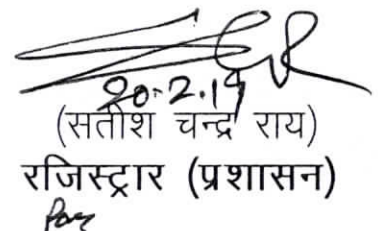 20.2.19
(सतीश चन्द्र राय)
रजिस्ट्रार (प्रशासन)